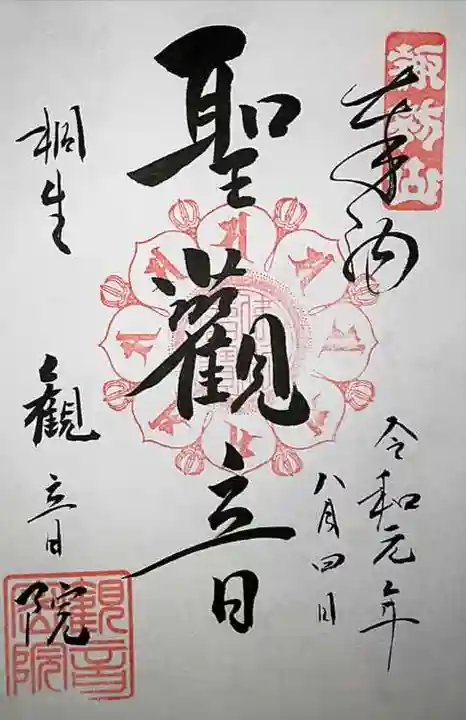 諏訪山
奉納
令和元年
八月四日
聖觀音
桐生
観音院
觀音
院